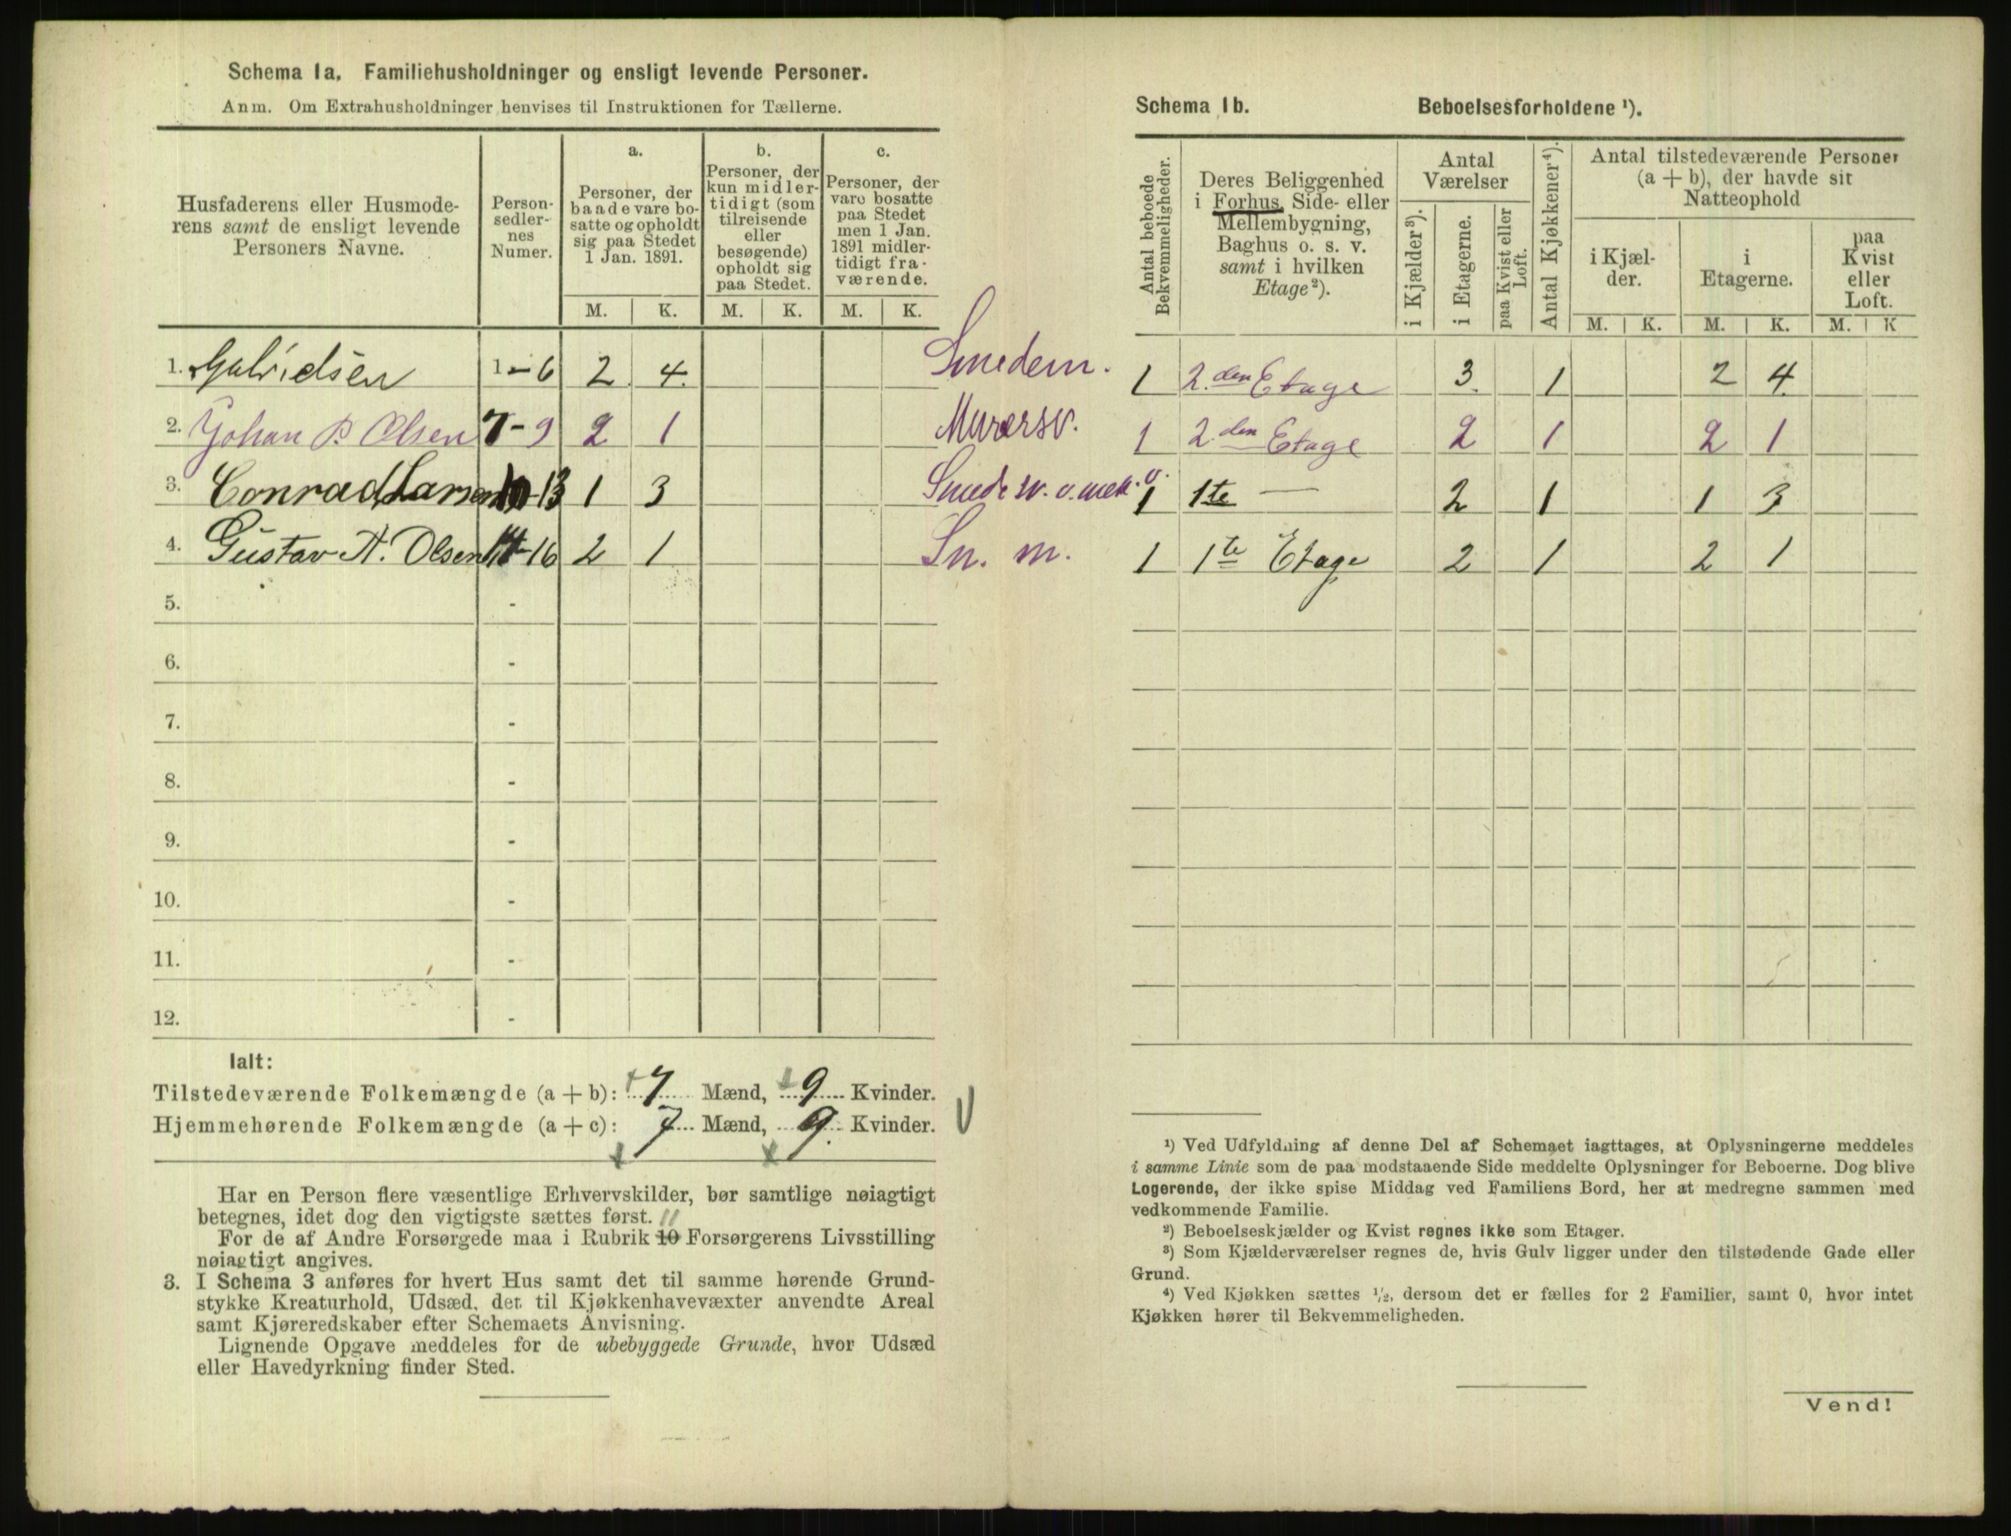 Schema 1a. Familiehusholdninger og ensligt levende Personer.
Anm. Om Extrahusholdninger henvises til Instruktionen for Tællerne.
Husfaderens eller Husmoderens samt de ensligt levende Personers Navne.
Person-sedler-nes Numer.
a. Personer, der baade vare bosatte og opholdt sig paa Stedet 1 Jan. 1891.
b. Personer, der kun midlertidigt (som tilreisende eller besøgende) opholdt sig paa Stedet.
c. Personer, der vare bosatte paa Stedet men 1 Jan. 1891 midlertidigt fraværende.
M. K. M. K. M. K.
1. Gabrielsen 1-6 2 4. Smedem.
2. Johan P. Olsen 7-9 2 1 Murersv.
3. Conrad Larsen 10-13 1 3 Smedesv. o. mek.
4. Gustav A. Olsen 14-16 2 1 Sn. m.
5. -
6. -
7. -
8. -
9. -
10. -
11. -
12. -
Ialt:
Tilstedeværende Folkemængde (a + b): 7 Mænd, 9 Kvinder.
Hjemmehørende Folkemængde (a + c): 7 Mænd, 9. Kvinder.
Har en Person flere væsentlige Erhvervskilder, bør samtlige nøiagtigt
betegnes, idet dog den vigtigste sættes først. 11
For de af Andre Forsørgede maa i Rubrik 10 Forsørgerens Livsstilling
nøiagtigt angives.
3. I Schema 3 anføres for hvert Hus samt det til samme hørende Grund-
stykke Kreaturhold, Udsæd, det til Kjøkkenhavevæxter anvendte Areal
samt Kjøreredskaber efter Schemaets Anvisning.
Lignende Opgave meddeles for de ubebyggede Grunde, hvor Udsæd
eller Havedyrkning finder Sted.
Schema 1b. Beboelsesforholdene ¹).
Antal beboede Bekvemmeligheder.
Deres Beliggenhed i Forhus, Side- eller Mellembygning, Baghus o. s. v. samt i hvilken Etage²).
Antal Værelser
i Kjælder³).
i Etagerne.
paa Kvist eller Loft.
Antal Kjøkkener⁴).
Antal tilstedeværende Personer (a + b), der havde sit Natteophold
i Kjælder.
i Etagerne.
paa Kvist eller Loft.
M. K. M. K. M. K
1 2.den Etage 3. 1 2 4.
1 2.den Etage 2 1 2 1
1 1te — 2 1 1 3
1 1te Etage 2 1 2 1
¹) Ved Udfyldning af denne Del af Schemaet iagttages, at Oplysningerne meddeles
i samme Linie som de paa modstaaende Side meddelte Oplysninger for Beboerne. Dog blive
Logerende, der ikke spise Middag ved Familiens Bord, her at medregne sammen med
vedkommende Familie.
²) Beboelseskjælder og Kvist regnes ikke som Etager.
³) Som Kjælderværelser regnes de, hvis Gulv ligger under den tilstødende Gade eller
Grund.
⁴) Ved Kjøkken sættes ¹/₂, dersom det er fælles for 2 Familier, samt 0, hvor intet
Kjøkken hører til Bekvemmeligheden.
Vend!